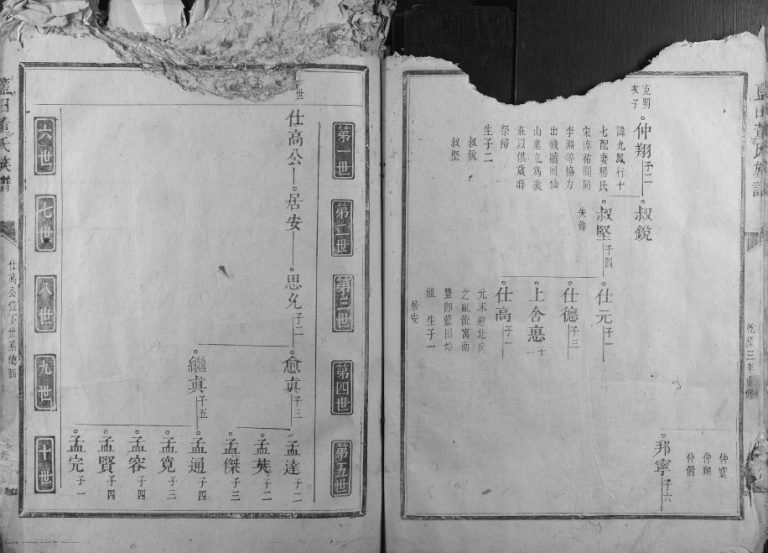 藍田董氏族譜
乾隆三年重修
仲寘
仲翔
仲僧
邦寧 子六
克明
次子
仲翔 子二
諱九鳳行十
七配妻楊氏
宋淳祐間同
李澗等協力
山業立為義
莊以供歲時
祭掃
生子二
叔鏡
叔堅
叔鏡
叔堅 子四
失傳
仕元 子一
仕德 子三
上舍
仕高 子一
元末避北兵
之亂從富南
豐即藍田始
祖 生子一
居安
第一世
第二世
第三世
第四世
第五世
仕高公
居安
思允 子二
愈真 子三
繼真 子五
孟達 子二
孟英 子二
孟傑 子三
孟通 子四
孟寬 子三
孟容 子四
孟賢 子四
孟完 子一
六世
七世
八世
九世
十世
藍田董氏族譜
仕高公位下世系總圖